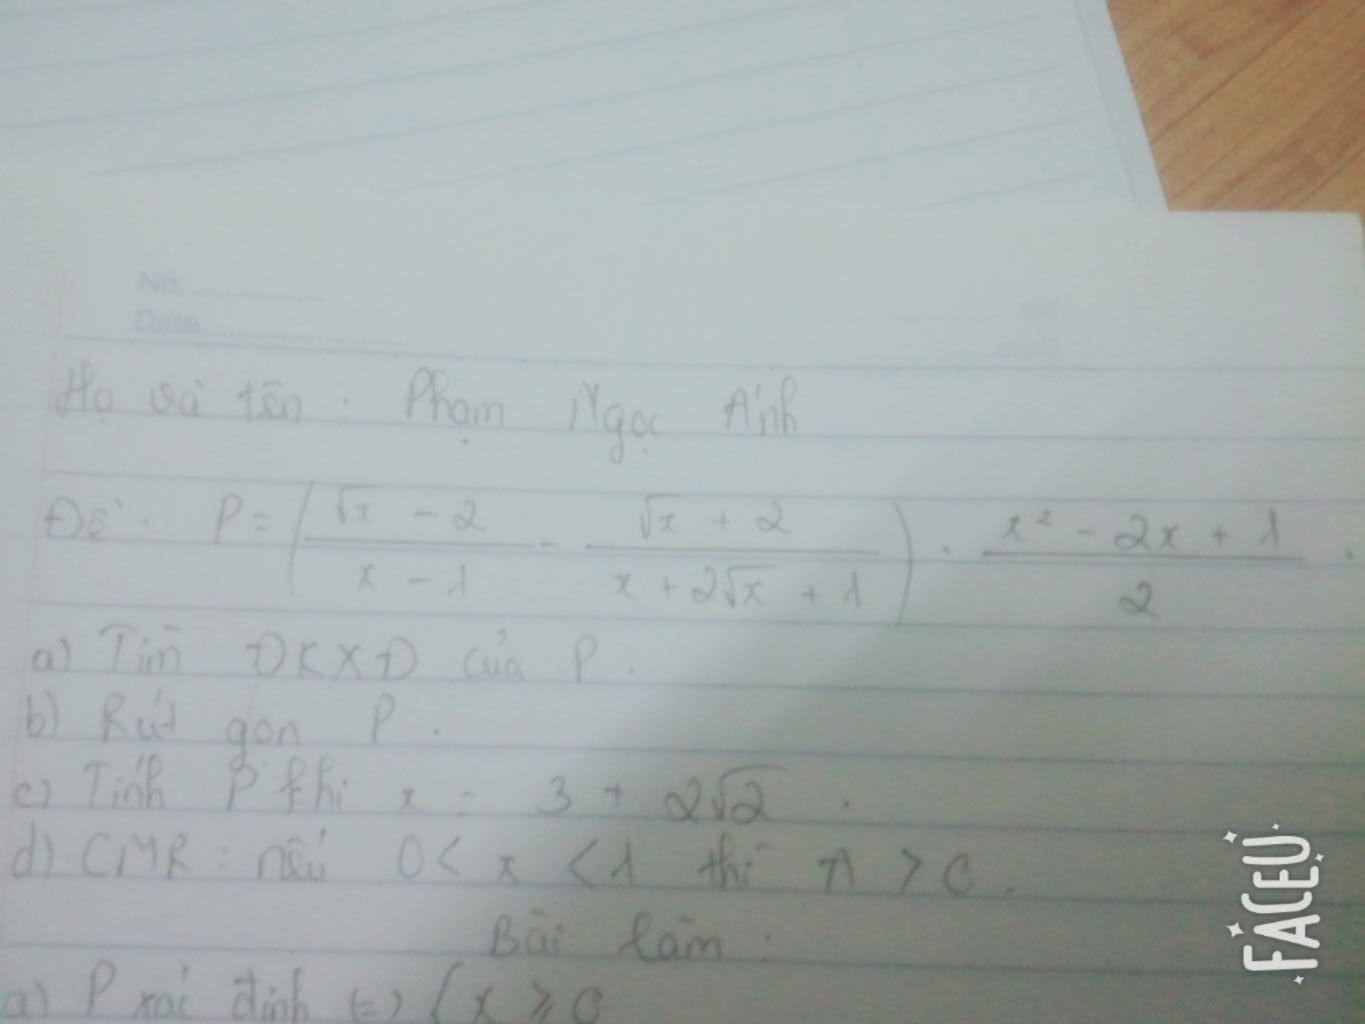 No.
Date
Họ và tên : Phạm Ngọc Ánh
Đề : P = ( (√x - 2)/(x - 1) - (√x + 2)/(x + 2√x + 1) ) . (x² - 2x + 1)/2 .
a) Tìm ĐKXĐ của P .
b) Rút gọn P .
c) Tính P khi x = 3 + 2√2 .
d) CMR : nếu 0 < x < 1 thì A > 0 .
Bài làm :
a) P xác định (=) { x ⩾ 0
FACEU